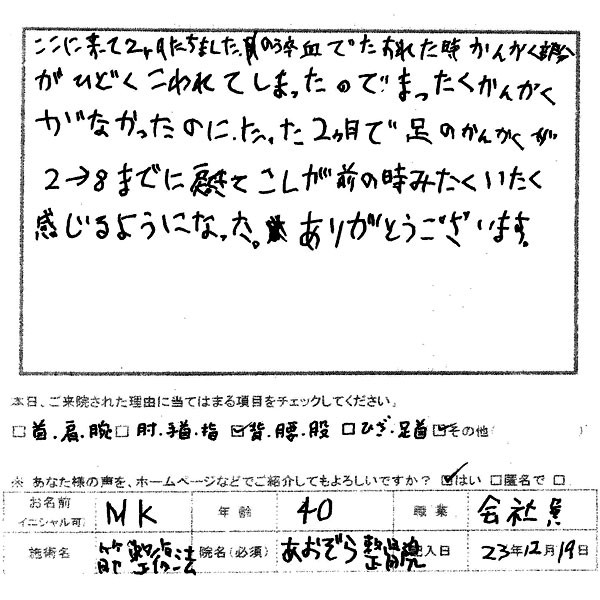 ここに来て2ヶ月たちました。脳の卒血でたおれた時かんかく部分
がひどくこわれてしまったのでまったくかんかく
がなかったのに、たった2ヶ月で足のかんかくが
2→8までに きて こしが前の時みたくいたく
感じるようになった。ありがとうございます。
本日、ご来院された理由に当てはまる項目をチェックしてください。
□首.肩.腕□肘.手首.指 ☑背.腰.股 □ひざ.足首☑その他( )
※ あなた様の声を、ホームページなどでご紹介してもよろしいですか? ☑はい □匿名で □
お名前 イニシャル可) MK 年齢 40 職業 会社員
施術名 筋整復法 院名(必須) あおぞら整骨院 記入日 23年12月19日